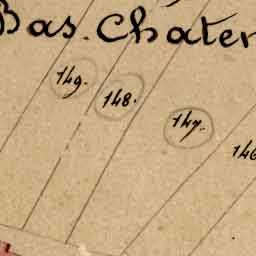 Bas. Chater
149.
148.
147.
146